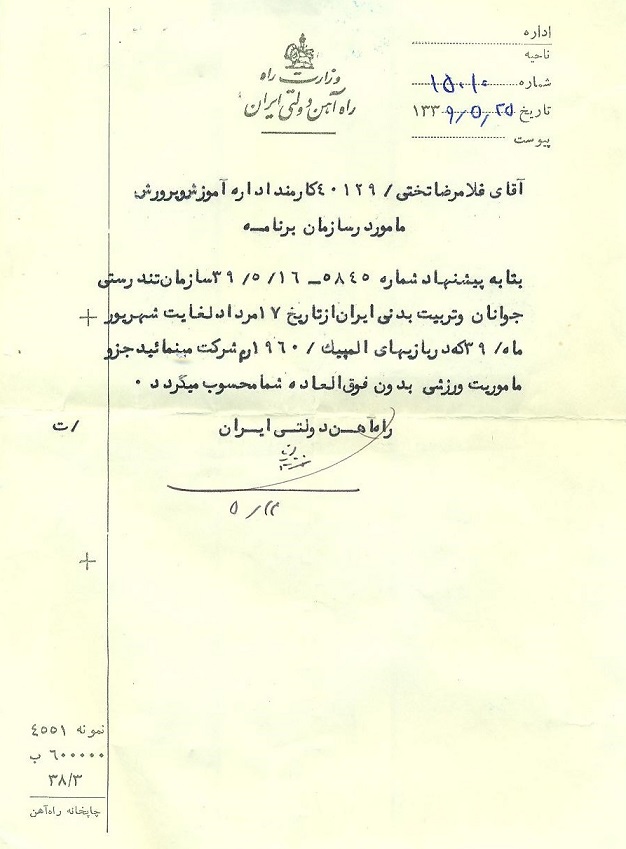 وزارت راه
راه آهن دولتی ایران
اداره
ناحیه
شماره ۱۵۰۱۰
تاریخ ۱۳۳۹/۵/۲۵
پیوست
آقای غلامرضا تختی / ٤٠١٢٩ کارمند اداره آموزش و پرورش
مامور در سازمان برنامه
بنا به پیشنهاد شماره ٥٨٤٥ - ٣٩/٥/١٦ سازمان تندرستی
جوانان و تربیت بدنی ایران از تاریخ ١٧ مرداد لغایت شهریور
ماه / ٣٩ که در بازیهای المپیک / ١٩٦٠ رم شرکت مینمائید جزو
ماموریت ورزشی بدون فوق العاده شما محسوب میگردد ٠
راه آهن دولتی ایران
/ت
۵/۲۴
نمونه ٤٥٥١
٦٠٠٠٠٠ ب
٣٨/٣
چاپخانه راه‌آهن